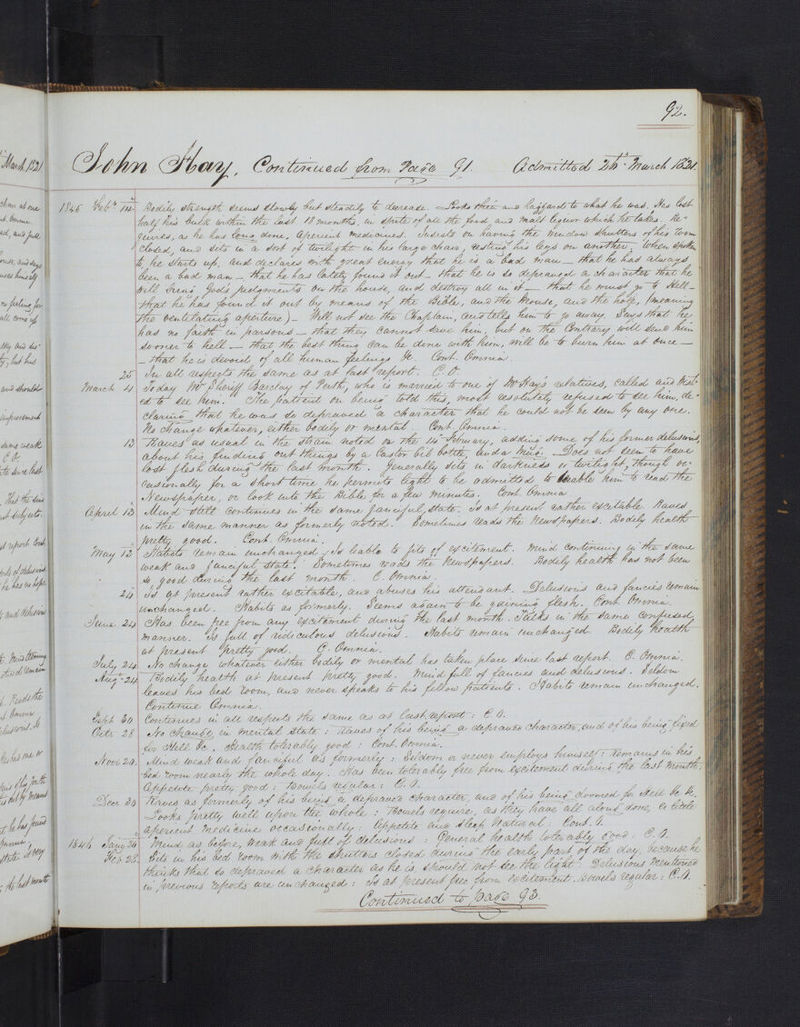 92.
John Hay, Continued from Page 91. Admitted 26th March 1821.
1845 Feby 14 Bodily strength seems slowly but steadily to decrease. Looks thin and haggard to what he was. Has lost
half his bulk within the last 18 months, in spite of all the food, and malt liquor which he takes. Re-
quires, as he has long done, aperient medicines. Insists on having the window shutters of his room
closed, and sits in a sort of twilight in his large chair, resting his legs on another, when spoken
to, he starts up, and declares with great energy that he is a bad man — that he has always
been a bad man — that he has lately found it out — that he is so depraved a character that he
will bring God's judgments on the house, and destroy all in it — that he must go to Hell —
that he has found it out by means of the Bible, and the Mouse, and the hole, (meaning
the ventilating aperture) — Will not see the Chaplain, and tells him to go away. Says that he
has no faith in parsons — that they cannot save him, but on the Contrary will send him
sooner to hell — that the best thing can be done with him, will be to burn him at once —
— that he is devoid of all human feelings &c. Cont. Omnia.
25 In all respects the same as at last report. C. O.
March 4 Today Mr Sheriff Barclay of Perth, who is married to one of Mr Hay's relatives, called and wish-
ed to see him. The patient on being told this, most resolutely refused to see him, de-
claring that he was so depraved a character that he could not be seen by any one.
No change whatever, either bodily or mental. Cont. Omnia.
13 Raves as usual in the strain noted on the 14 February, adding some of his former delusions,
about his finding out things by a Castor oil bottle, and a Mug. Does not seem to have
lost flesh during the last month. Generally sits in darkness or twilight, though oc-
casionally for a short time he permits light to be admitted to enable him to read the
Newspaper, or look into the Bible for a few minutes. Cont. Omnia
April 12 Mind still continues in the same fanciful state. Is at present rather excitable. Raves
in the same manner as formerly noted. Sometimes reads the Newspapers. Bodily health
pretty good. Cont. Omnia.
May 12 Habits remain unchanged, Is liable to fits of excitement. Mind continuing in the same
weak and fanciful state. Sometimes reads the Newspapers. Bodily health has not been
so good during the last month. C. Omnia.
24 Is at present rather excitable, and abuses his attendant. Delusions and fancies remain
unchanged. Habits as formerly. Seems again to be gaining flesh. Cont. Omnia.
June 24 Has been free from any excitement during the last month. Talks in the same confused
manner. Is full of ridiculous delusions. Habits remain unchanged. Bodily health
at present pretty good. C. Omnia.
July 24 No change whatever either bodily or mental has taken place since last report. C. Omnia.
Augt 24 Bodily health at present pretty good. Mind full of fancies and delusions. Seldom
leaves his bed room, and never speaks to his fellow patients. Habits remain unchanged.
Continue Omnia.
Sept 30 Continues in all respects the same as at last report: C. O.
Octr 28 No change in mental state: raves of his being a depraved character, and of his being fixed
for Hell &c. Health tolerably good: Cont. Omnia.
Novr 20 Mind weak and fanciful as formerly: Seldom or never employs himself: remains in his
bed room nearly the whole day. Has been tolerably free from excitement during the last month;
appetite pretty good: bowels regular: C. O.
Decr 20 Raves as formerly of his being a depraved character, and of his being doomed for Hell &c &c.
Looks pretty well upon the whole: Bowels require, as they have all along done, a little
aperient medicine occasionally: Appetite and sleep Natural. Cont. O.
1846 Jany 24 Mind as before, weak and full of delusions: General health tolerably good. C. O.
Feb 25 Sits in his bed room with the shutters closed during the early part of the day, because he
thinks that so depraved a character as he is should not see the light. Delusions mentioned
in previous reports are unchanged: Is at present free from excitement. Bowels regular: C. O.
Continued to page 93.